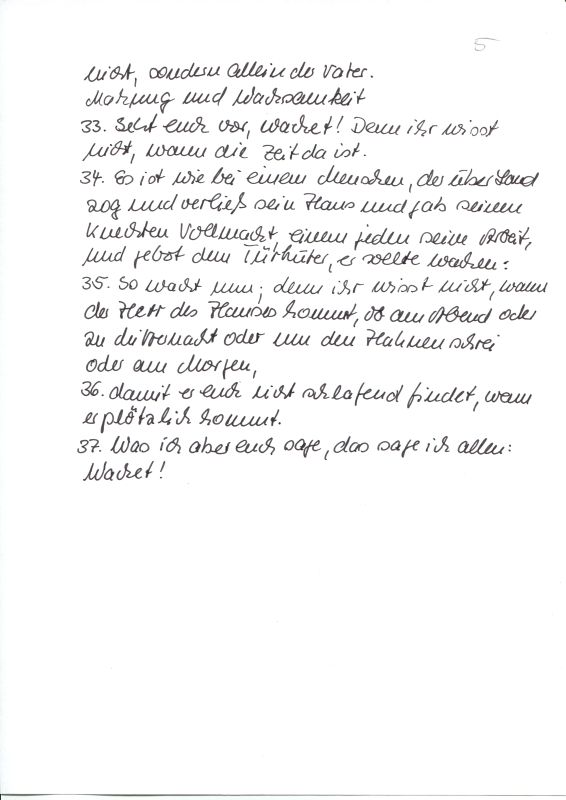 5
nicht, sondern allein der Vater.
Mahnung und Wachsamkeit
33. Seht euch vor, wachet! Denn ihr wisst
nicht, wann die Zeit da ist.
34. Es ist wie bei einem Menschen, der über Land
zog und verließ sein Haus und gab seinen
Knechten Vollmacht einem jeden seine Arbeit,
und gebot dem Türhüter, er sollte wachen:
35. So wacht nun; denn ihr wisst nicht, wann
der Herr des Hauses kommt, ob am Abend oder
zu Mitternacht oder um den Hahnenschrei
oder am Morgen,
36. damit er euch nicht schlafend findet, wenn
er plötzlich kommt.
37. Was ich aber euch sage, das sage ich allen:
Wachet!